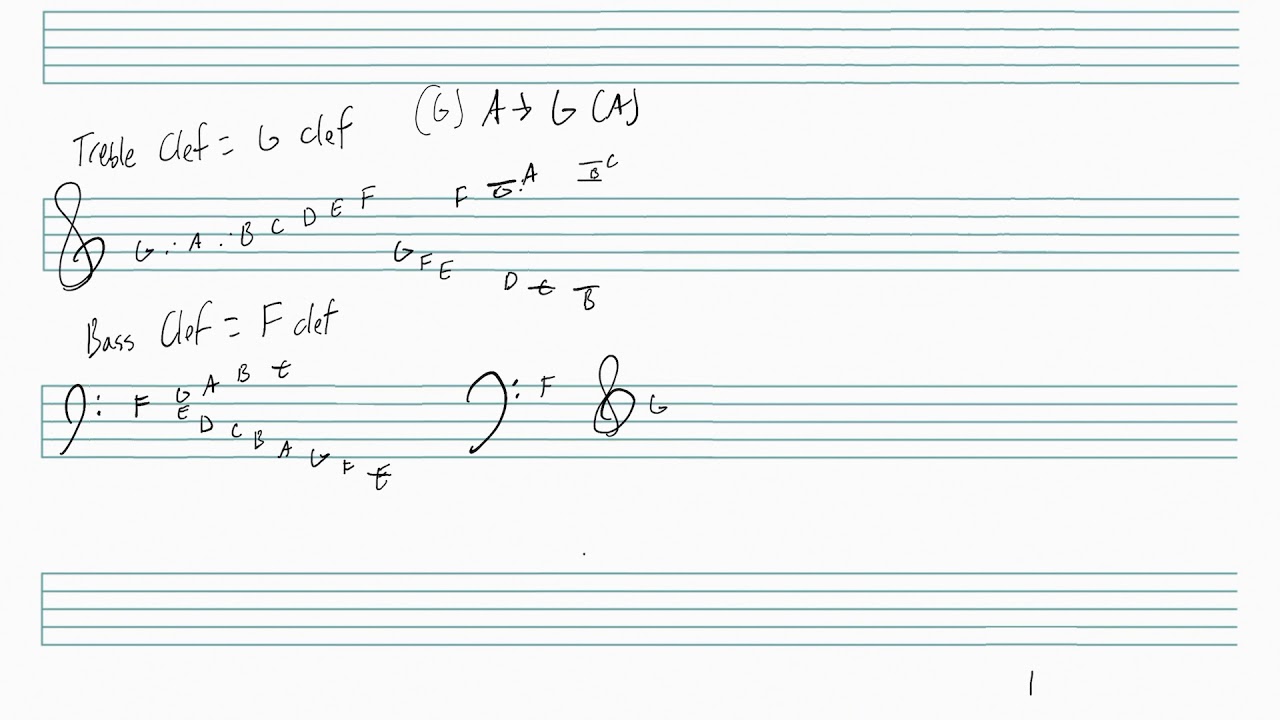 (G) A → G (A)
Treble Clef = G clef
G A B C D E F
F G A B C
G F E D C B
Bass Clef = F clef
F G A B C
E D C B A G F E
F
G